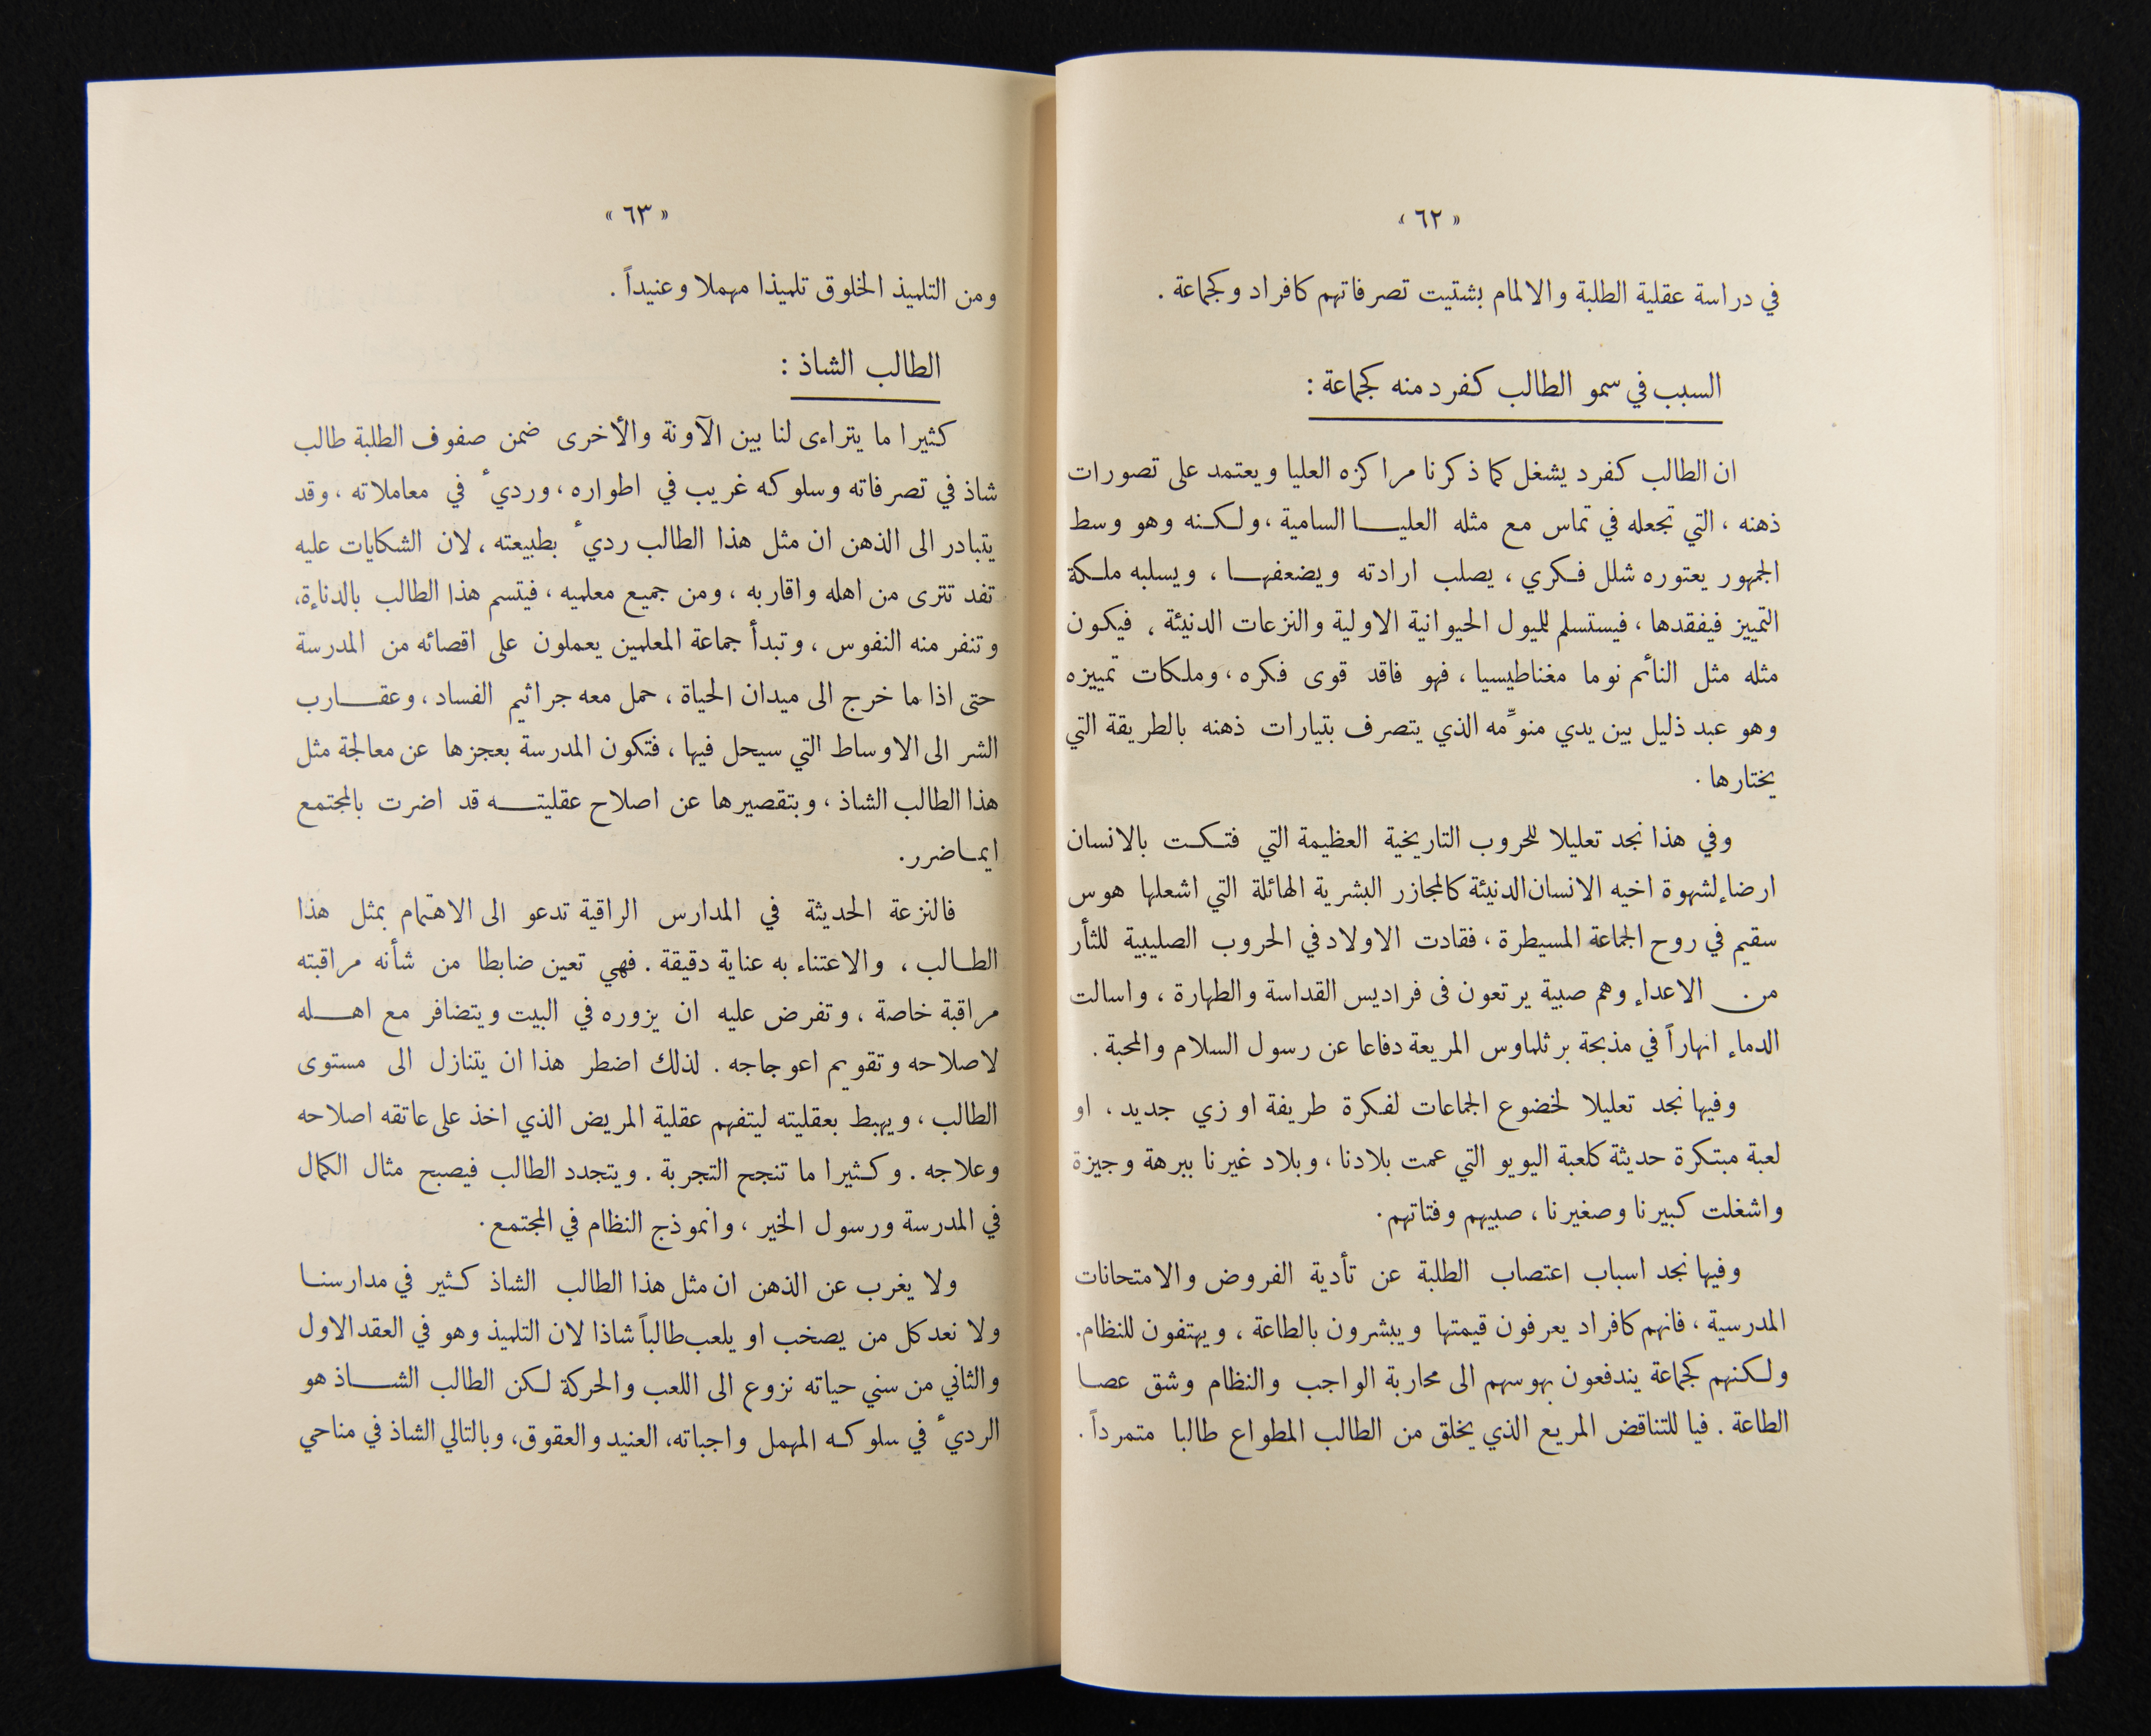 « ٦٢ »
في دراسة عقلية الطلبة والالمام بشتيت تصرفاتهم كافراد وكجماعة .
السبب في سمو الطالب كفرد منه كجماعة :
ان الطالب كفرد يشغل كما ذكرنا مراكزه العليا ويعتمد على تصورات
ذهنه ، التي تجعله في تماس مع مثله العليا السامية ، ولكنه وهو وسط
الجمهور يعتوره شلل فكري ، يصلب ارادته ويضعفها ، ويسلبه ملكة
التمييز فيفقدها ، فيستسلم لليول الحيوانية الاولية والنزعات الدنيئة ، فيكون
مثله مثل النائم نوما مغناطيسيا ، فهو فاقد قوى فكره ، وملكات تمييزه
وهو عبد ذليل بين يدي منوِّمه الذي يتصرف بتيارات ذهنه بالطريقة التي
يختارها .
وفي هذا نجد تعليلا للحروب التاريخية العظيمة التي فتكت بالانسان
ارضاء لشهوة اخيه الانسان الدنيئة كالمجازر البشرية الهائلة التي اشعلها هوس
سقيم في روح الجماعة المسيطرة ، فقادت الاولاد في الحروب الصليبية للثأر
من الاعداء وهم صبية يرتعون فى فراديس القداسة والطهارة ، واسالت
الدماء انهاراً في مذبحة برثلماوس المريعة دفاعا عن رسول السلام والمحبة .
وفيها نجد تعليلا لخضوع الجماعات لفكرة طريفة او زي جديد ، او
لعبة مبتكرة حديثة كلعبة اليويو التي عمت بلادنا ، وبلاد غيرنا ببرهة وجيزة
واشغلت كبيرنا وصغيرنا ، صبيهم وفتاتهم .
وفيها نجد اسباب اعتصاب الطلبة عن تأدية الفروض والامتحانات
المدرسية ، فانهم كافراد يعرفون قيمتها ويبشرون بالطاعة ، ويهتفون للنظام .
ولكنهم كجماعة يندفعون بهوسهم الى محاربة الواجب والنظام وشق عصا
الطاعة . فيا للتناقض المريع الذي يخلق من الطالب المطواع طالبا متمرداً .
« ٦٣ »
ومن التلميذ الخلوق تلميذا مهملا وعنيداً .
الطالب الشاذ :
كثيرا ما يتراءى لنا بين الآونة والأخرى ضمن صفوف الطلبة طالب
شاذ في تصرفاته وسلوكه غريب في اطواره ، وردئ في معاملاته ، وقد
يتبادر الى الذهن ان مثل هذا الطالب ردئ بطبيعته ، لان الشكايات عليه
تفد تترى من اهله واقاربه ، ومن جميع معلميه ، فيتسم هذا الطالب بالدناءة ،
وتنفر منه النفوس ، وتبدأ جماعة المعلمين يعملون على اقصائه من المدرسة
حتى اذا ما خرج الى ميدان الحياة ، حمل معه جراثيم الفساد ، وعقارب
الشر الى الاوساط التي سيحل فيها ، فتكون المدرسة بعجزها عن معالجة مثل
هذا الطالب الشاذ ، وبتقصيرها عن اصلاح عقليته قد اضرت بالمجتمع
ايما ضرر .
فالنزعة الحديثة في المدارس الراقية تدعو الى الاهتمام بمثل هذا
الطالب ، والاعتناء به عناية دقيقة . فهي تعين ضابطا من شأنه مراقبته
مراقبة خاصة ، وتفرض عليه ان يزوره في البيت ويتضافر مع اهله
لاصلاحه وتقويم اعوجاجه . لذلك اضطر هذا ان يتنازل الى مستوى
الطالب ، ويهبط بعقليته ليتفهم عقلية المريض الذي اخذ على عاتقه اصلاحه
وعلاجه . وكثيرا ما تنجح التجربة . ويتجدد الطالب فيصبح مثال الكمال
في المدرسة ورسول الخير ، وانموذج النظام في المجتمع .
ولا يغرب عن الذهن ان مثل هذا الطالب الشاذ كثير في مدارسنا
ولا نعد كل من يصخب او يلعب طالباً شاذا لان التلميذ وهو في العقد الاول
والثاني من سني حياته نزوع الى اللعب والحركة لكن الطالب الشاذ هو
الردئ في سلوكه المهمل واجباته ، العنيد والعقوق ، وبالتالي الشاذ في مناحي